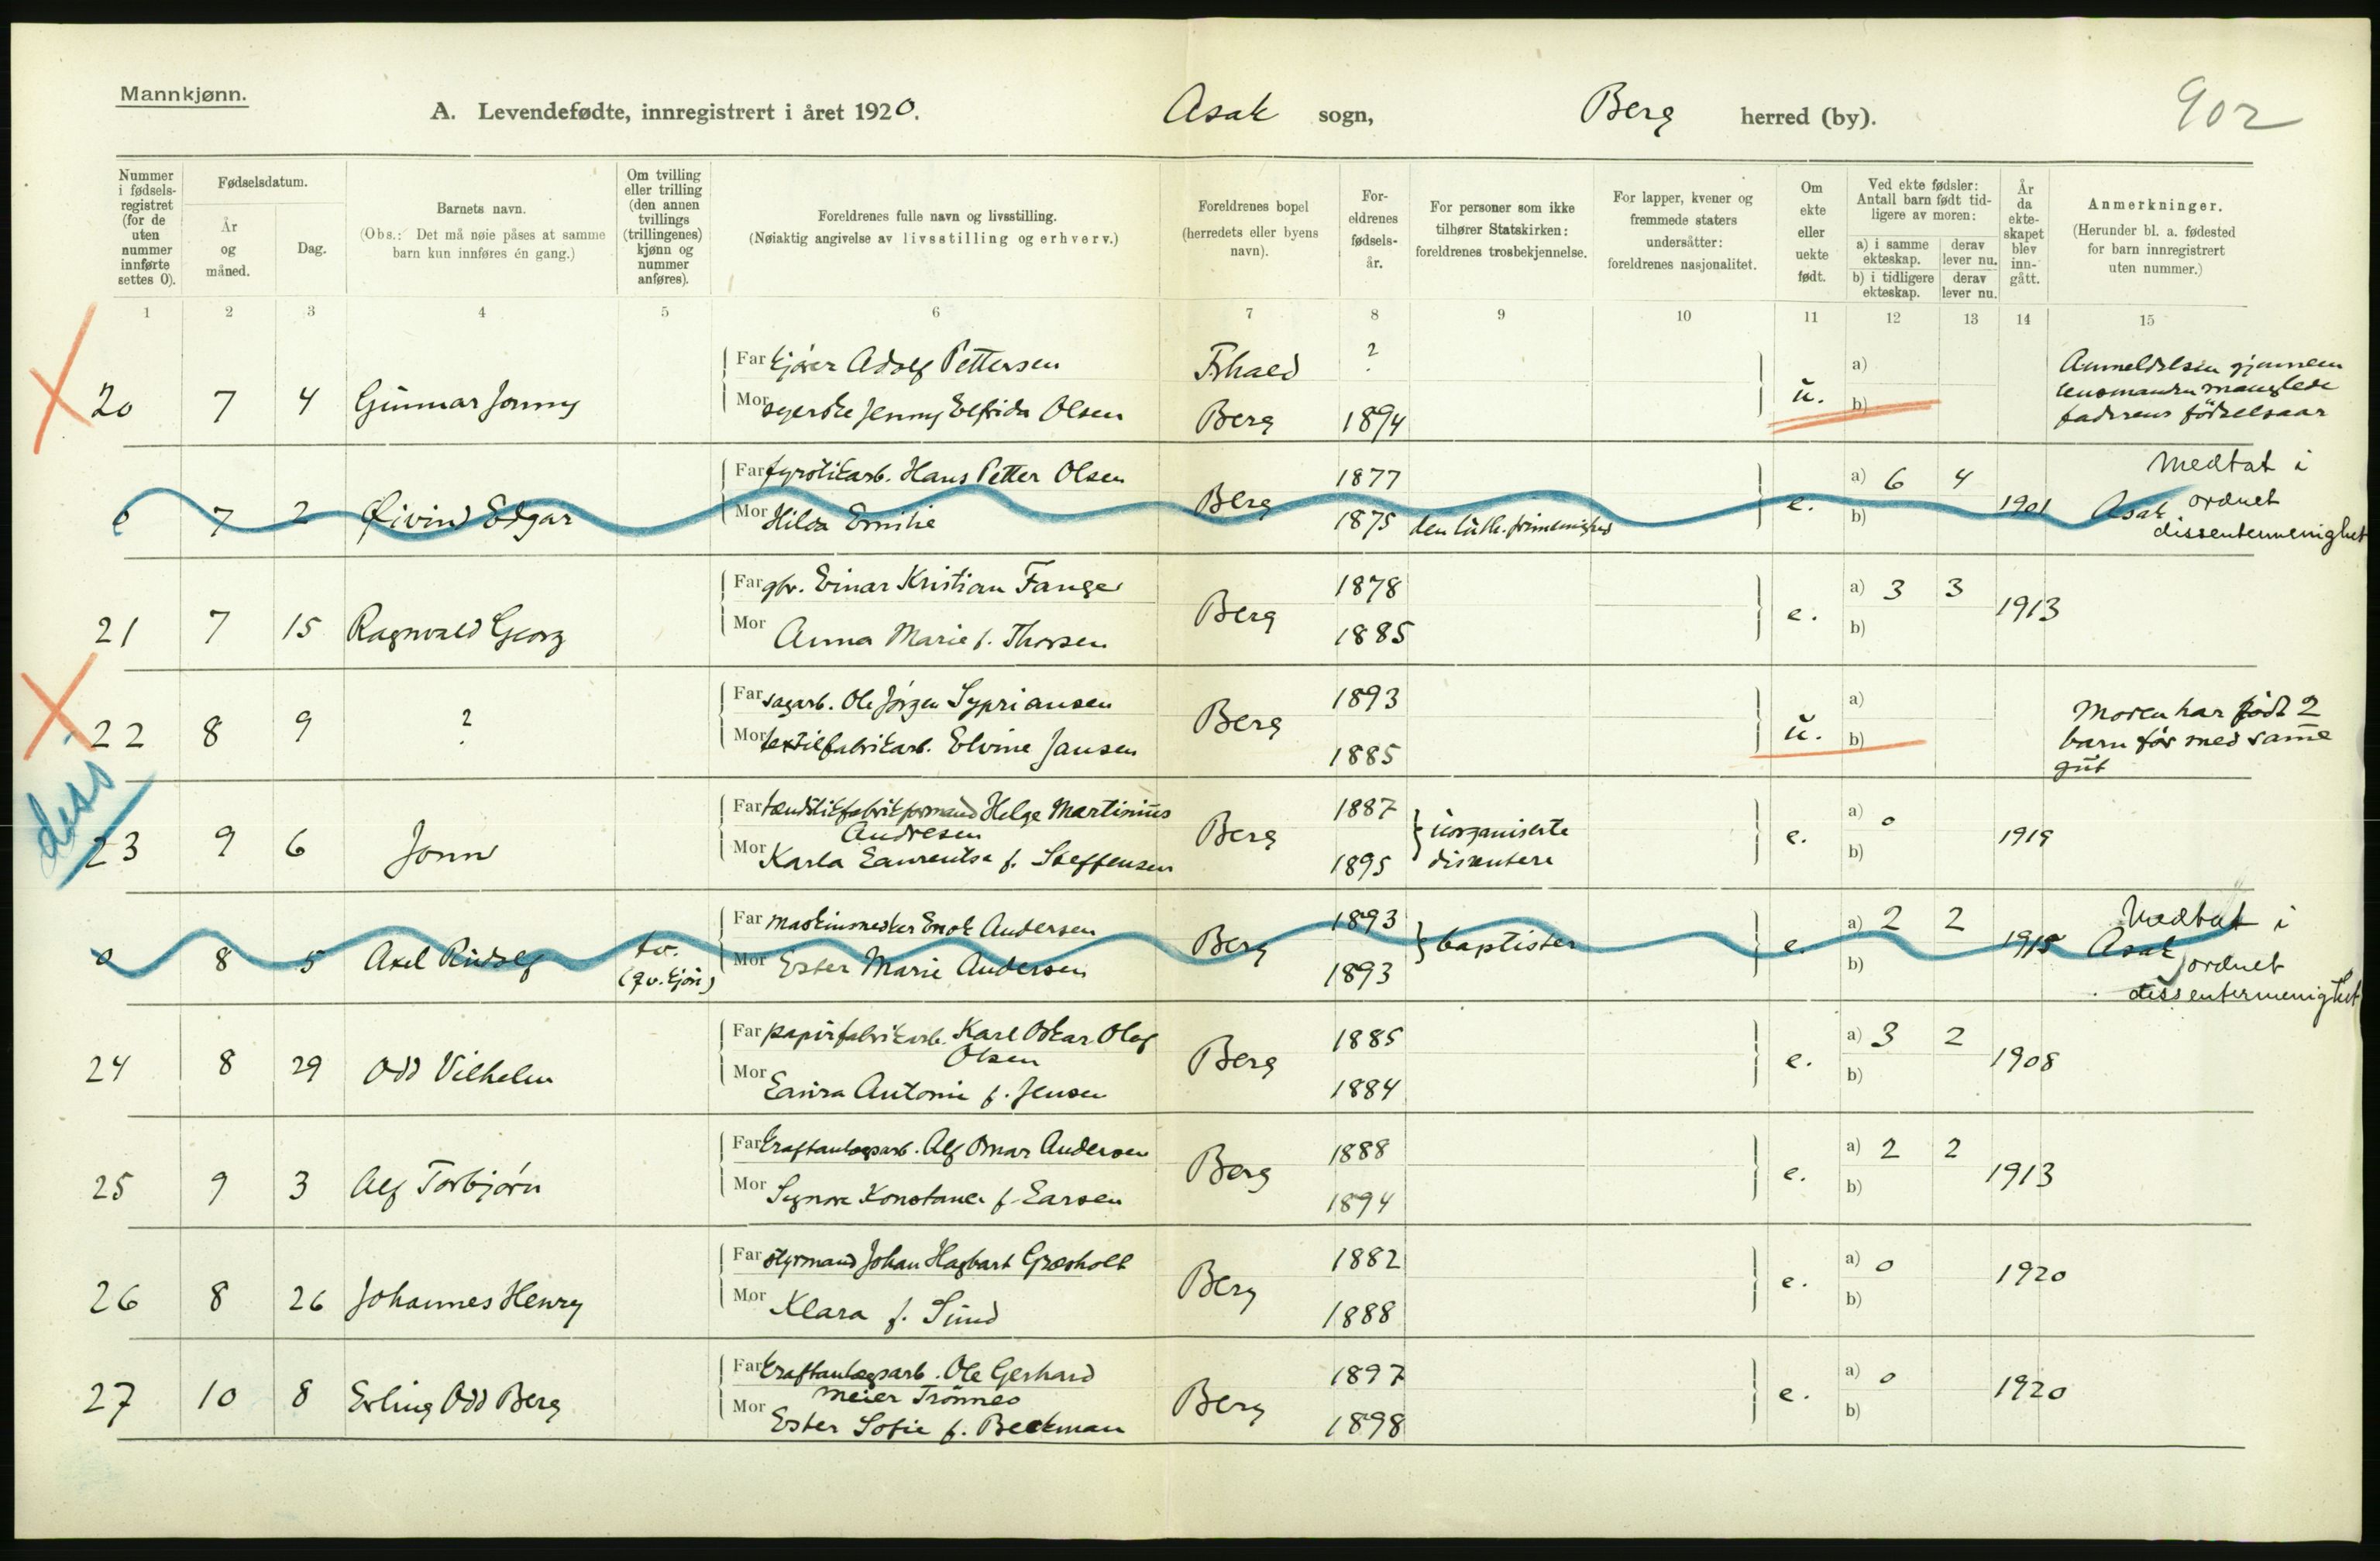 Mannkjønn.
A. Levendefødte, innregistrert i året 1920. Asak sogn, Berg herred (by). 902
Nummer i fødsels-registret (for de uten nummer innførte settes 0).
Fødselsdatum.
År og måned.
Dag.
Barnets navn.
(Obs.: Det må nøie påses at samme barn kun innføres én gang.)
Om tvilling eller trilling (den annen tvillings (trillingenes) kjønn og nummer anføres).
Foreldrenes fulle navn og livsstilling.
(Nøiaktig angivelse av livsstilling og erhverv.)
Foreldrenes bopel (herredets eller byens navn).
For-eldrenes fødsels-år.
For personer som ikke tilhører Statskirken: foreldrenes trosbekjennelse.
For lapper, kvener og fremmede staters undersåtter: foreldrenes nasjonalitet.
Om ekte eller uekte født.
Ved ekte fødsler: Antall barn født tid-ligere av moren:
a) i samme ekteskap. derav lever nu.
b) i tidligere ekteskap. derav lever nu.
År da ekte-skapet blev inn-gått.
Anmerkninger.
(Herunder bl. a. fødested for barn innregistrert uten nummer.)
1 2 3 4 5 6 7 8 9 10 11 12 13 14 15
Far kjører Adolf Pettersen Fshald ? a) Anmeldelsen gjennem
20 7 4 Gunnar Jonny ŭ. lensmanden manglede
Mor syerske Jenny Elfrida Olsen Berg 1894 b) faderens fødselsaar
Far fyrstikarb. Hans Petter Olsen 1877 a) 6 4 Medtat i
0 7 2 Øivind Edgar Berg e. 1901 Asak ordnet
Mor Hilda Emilie 1875 den luth. frimenighed b) dissentermenighet
Far gbr. Einar Kristian Fange 1878 a) 3 3
21 7 15 Ragnvald Georg Berg e. 1913
Mor Anna Marie f. Thorsen 1885 b)
Far sagarb. Ole Jørgen Sypriansen 1893 a) Moren har født 2
22 8 9 ? Berg ŭ. barn før med samme
Mor textilfabrikarb. Elvine Jansen 1885 b) gŭt
diss
Far tændstikfabrikformand Helge Martinius 1887 a) 0
23 9 6 Jonn Andresen Berg uorganiserte e. 1919
Mor Karla Laurentse f. Steffensen 1895 dissentere b)
Far maskinmester Enok Andersen 1893 a) 2 2 Medtat i
0 8 5 Axel Rŭdolf tv. Berg baptister e. 1915 Asak
(qv. kjøn) Mor Ester Marie Andersen 1893 b) ordnet
dissentermenighet
Far papirfabrikarb. Karl Oskar Olaf 1885 a) 3 2
24 8 29 Odd Vilhelm Olsen Berg e. 1908
Mor Laura Antonie f. Jensen 1884 b)
Far kraftanlægsarb. Alf Omar Andersen 1888 a) 2 2
25 9 3 Alf Torbjørn Berg e. 1913
Mor Signora Konstance f. Larsen 1894 b)
Far styrmand Johan Hagbart Græsholt 1882 a) 0
26 8 26 Johannes Henry Berg e. 1920
Mor Klara f. Sŭnd 1888 b)
Far kraftanlægsarb. Ole Gerhard 1897 a) 0
27 10 8 Erling Odd Berg Meier Trømnes Berg e. 1920
Mor Ester Sofie f. Beckman 1898 b)